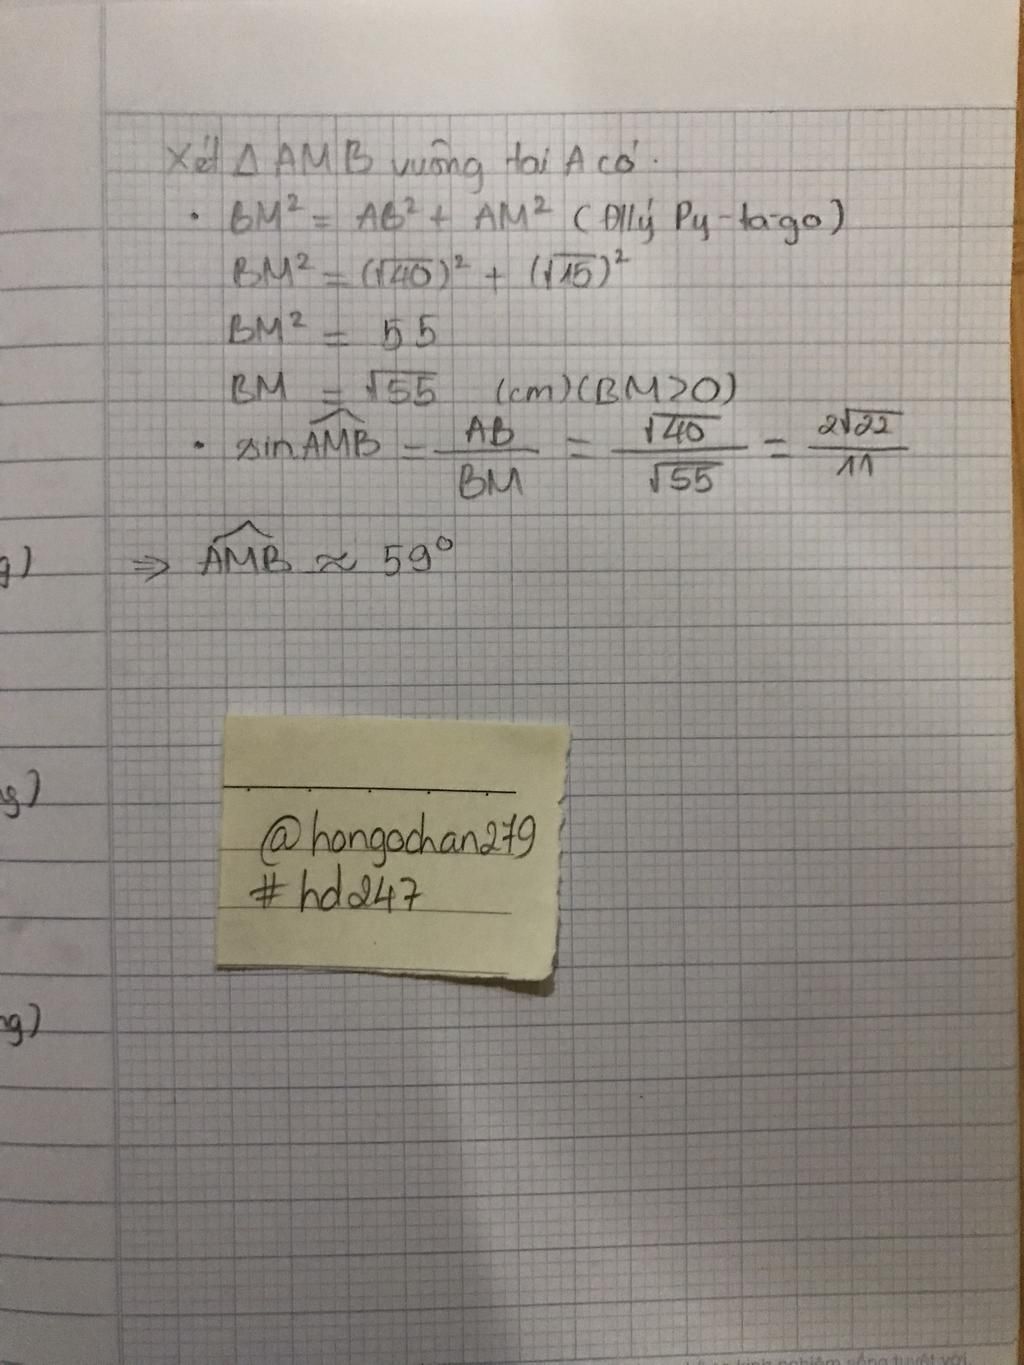 Xét Δ AMB vuông tại A có.
• BM² = AB² + AM² (Đlý Py-ta-go)
BM² = (√40)² + (√15)²
BM² = 55
BM = √55 (cm) (BM>0)
• sin AMB = AB/BM = √40/√55 = 2√22/11
g) ⇒ AMB ≈ 59°
ng)
@hongochan279
# hd247
ng)